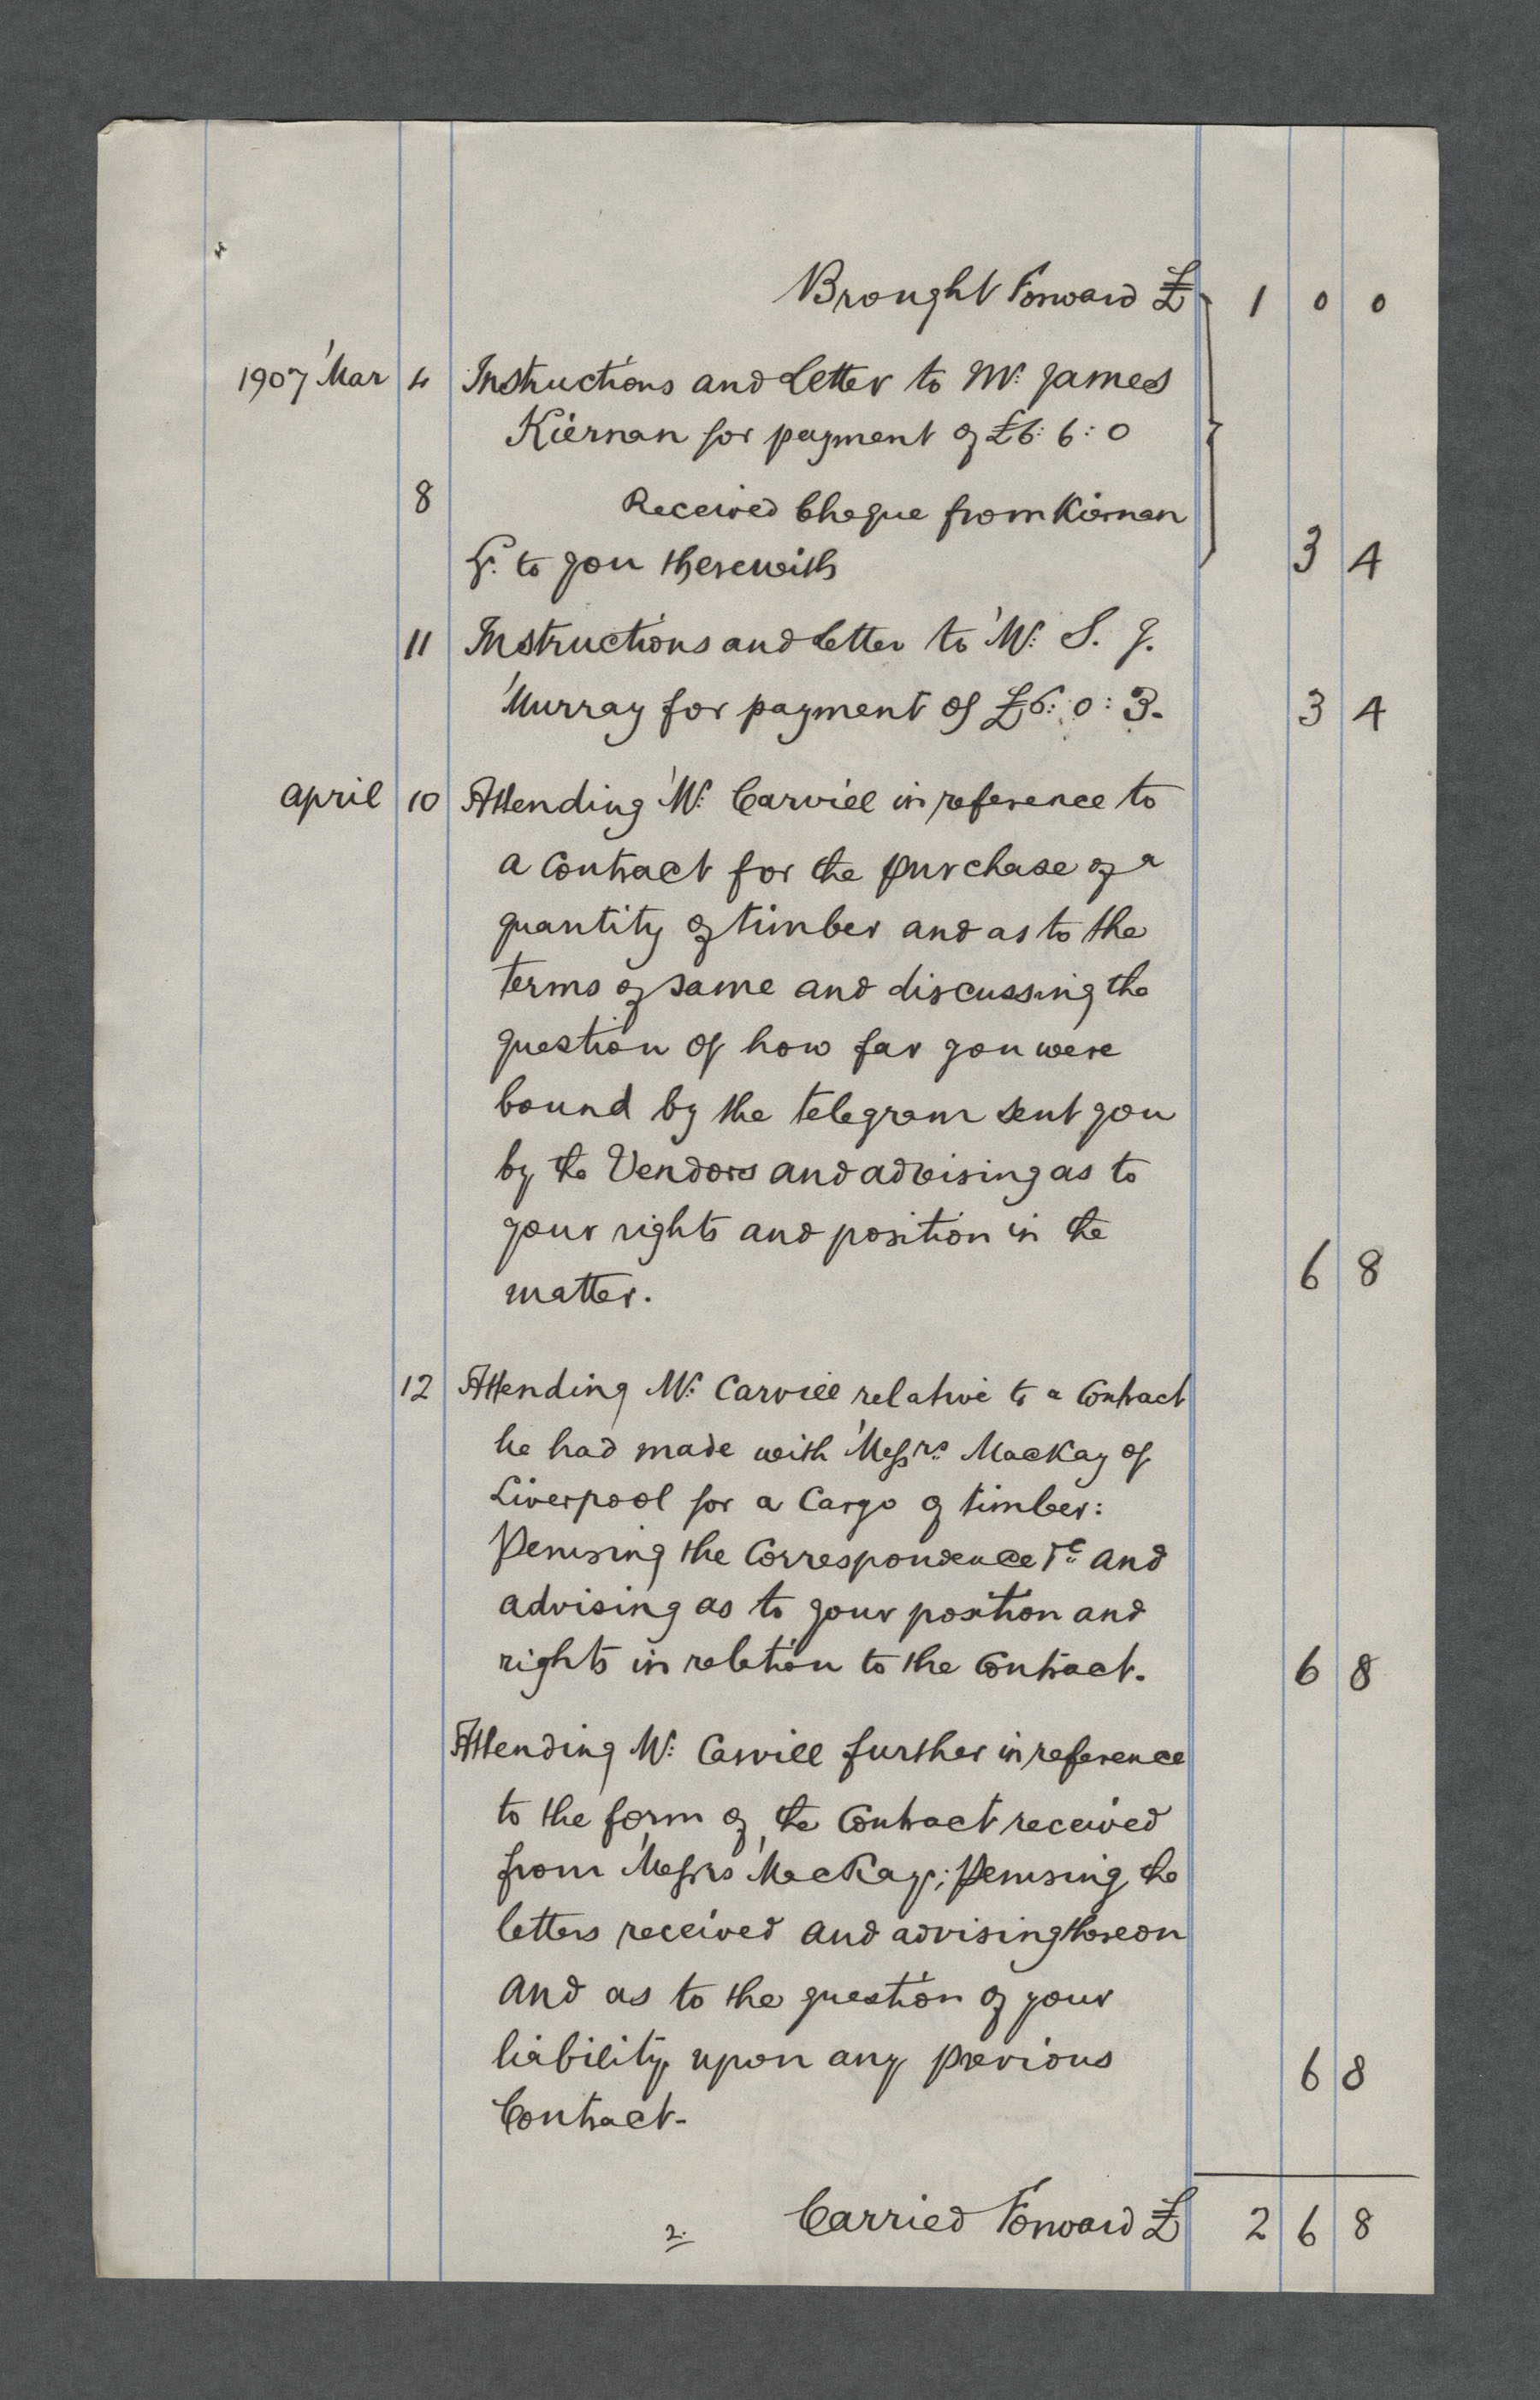 Brought Forward £ 1 0 0
1907 Mar 4 Instructions and Letter to Mr. James
Kiernan for payment of £6: 6: 0
8 Received Cheque from Kiernan
Lr. to you therewith 3 4
11 Instructions and Letter to Mr. S. J.
Murray for payment of £6: 0: 3. 3 4
April 10 Attending Mr. Carvill in reference to
a Contract for the purchase of a
quantity of timber and as to the
terms of same and discussing the
question of how far you were
bound by the telegram sent you
by the Vendors and advising as to
your rights and position in the
matter. 6 8
12 Attending Mr. Carvill relative to a Contract
he had made with Messrs. MacKay of
Liverpool for a Cargo of timber:
Perusing the Correspondence &c. and
advising as to your position and
rights in relation to the Contract. 6 8
Attending Mr. Carvill further in reference
to the form of the Contract received
from Messrs MacKay; Perusing the
letters received and advising thereon
and as to the question of your
liability upon any previous
Contract- 6 8
2. Carried Forward £ 2 6 8